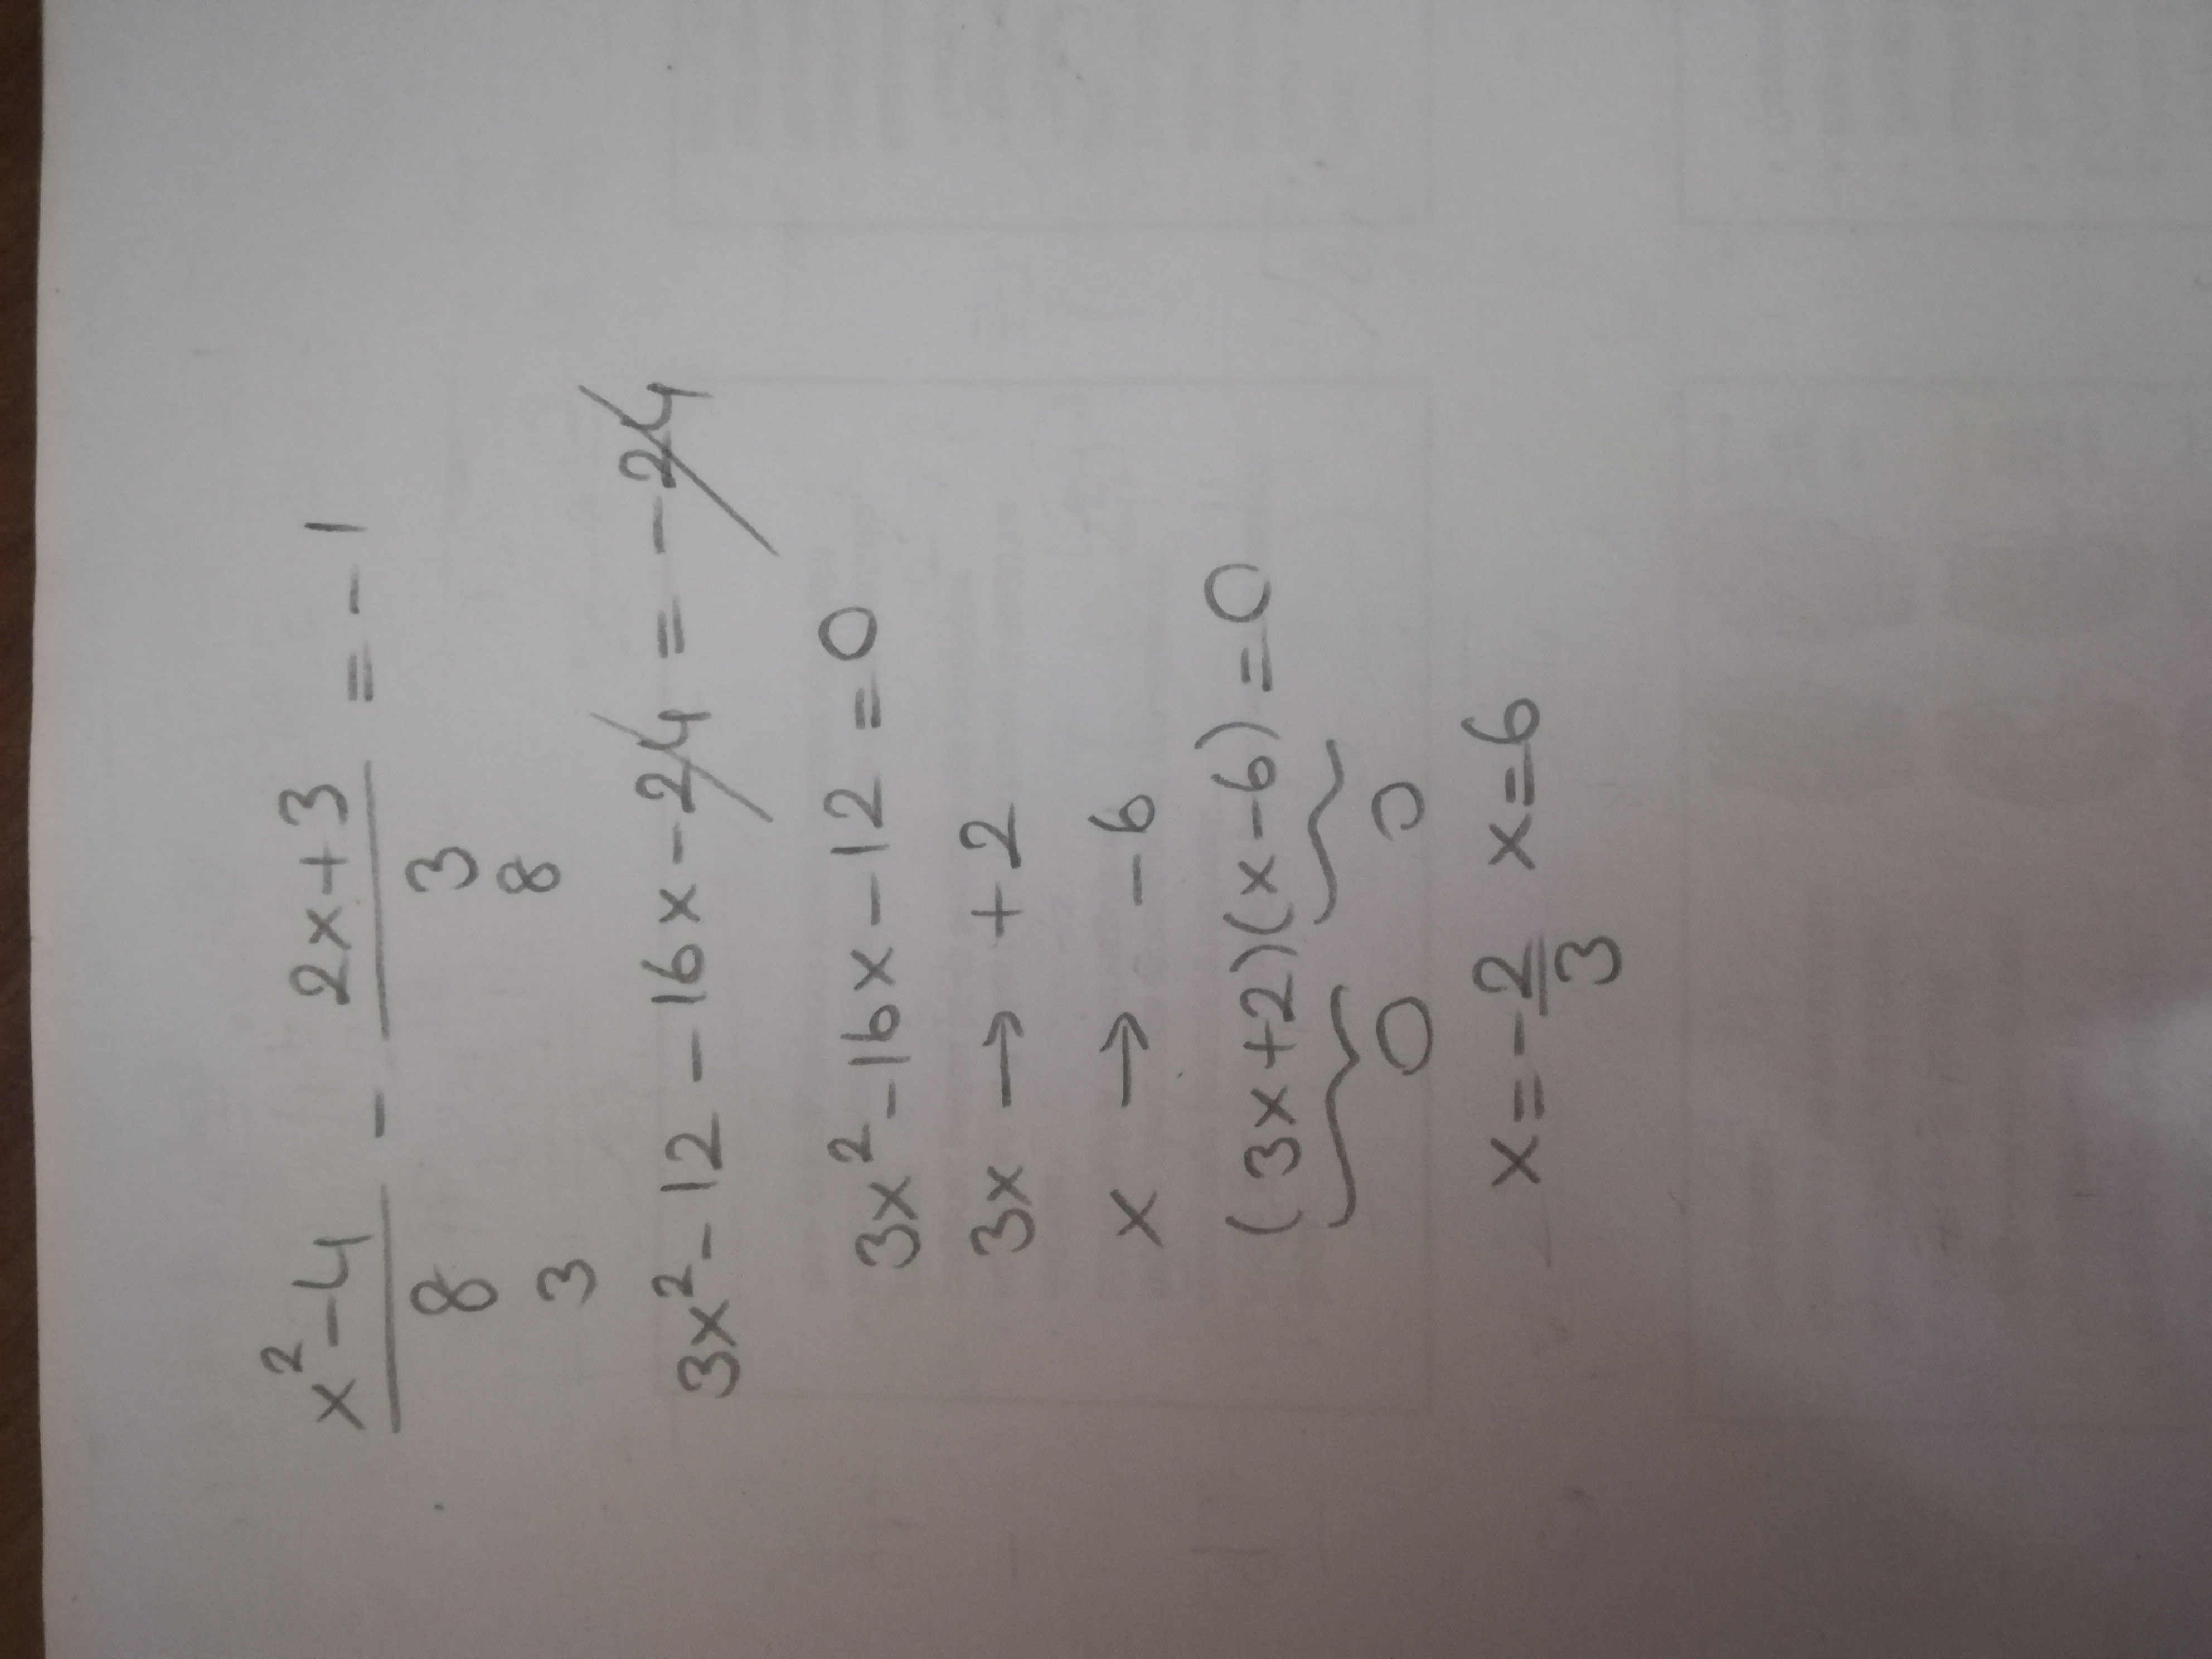 x² - 4 / 8 - 2x + 3 / 3 = - 1
3 8
3x² - 12 - 16x - 24 = - 24
3x² - 16x - 12 = 0
3x → + 2
x → - 6
(3x + 2)(x - 6) = 0
0 0
x = - 2/3 x = 6